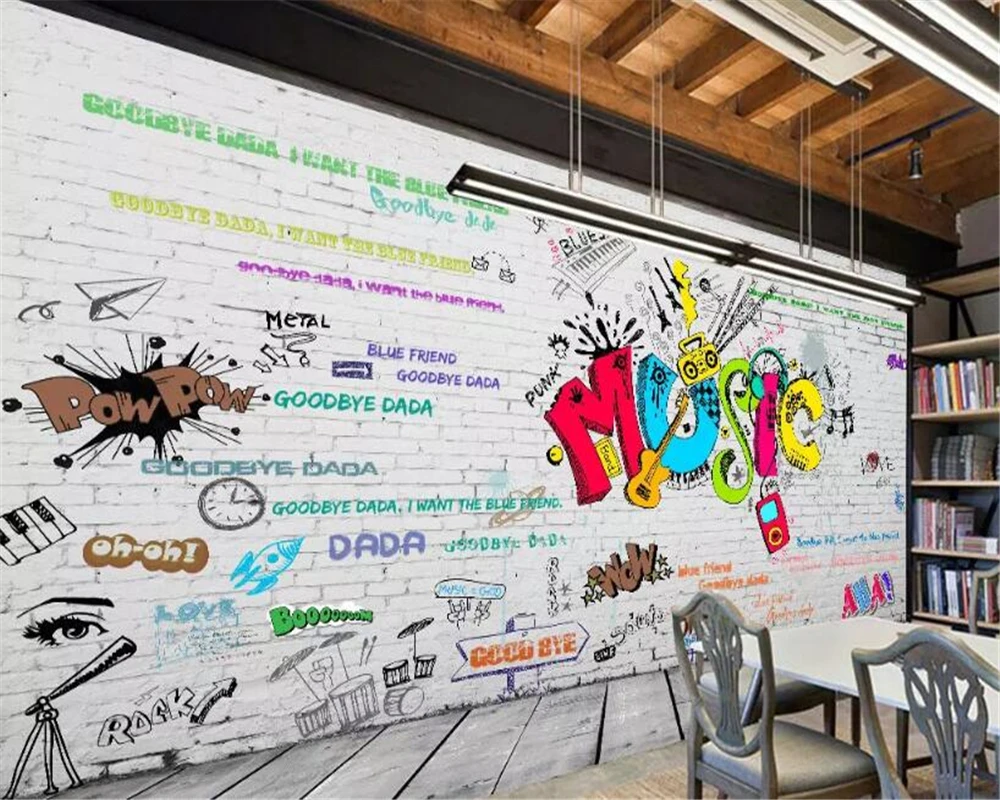 GOODBYE DADA I WANT THE BLUE FRIEND
Goodbye dade
GOODBYE DADA, I WANT THE BLUE FRIEND
goodbye dada, i want the blue friend.
BLUES
METAL
PUNK
BLUE FRIEND
GOODBYE DADA
POW POW
GOODBYE DADA
MUSIC
Band
GOODBYE DADA
LOVE
GOODBYE DADA, I WANT THE BLUE FRIEND.
oh-oh!
DADA
GOODBYE DADA
WOW
blue friend
Goodbye dada
AHA!
LOVE
BOOOOOOOM
MUSIC = GOD
GOOD BYE
ROCK